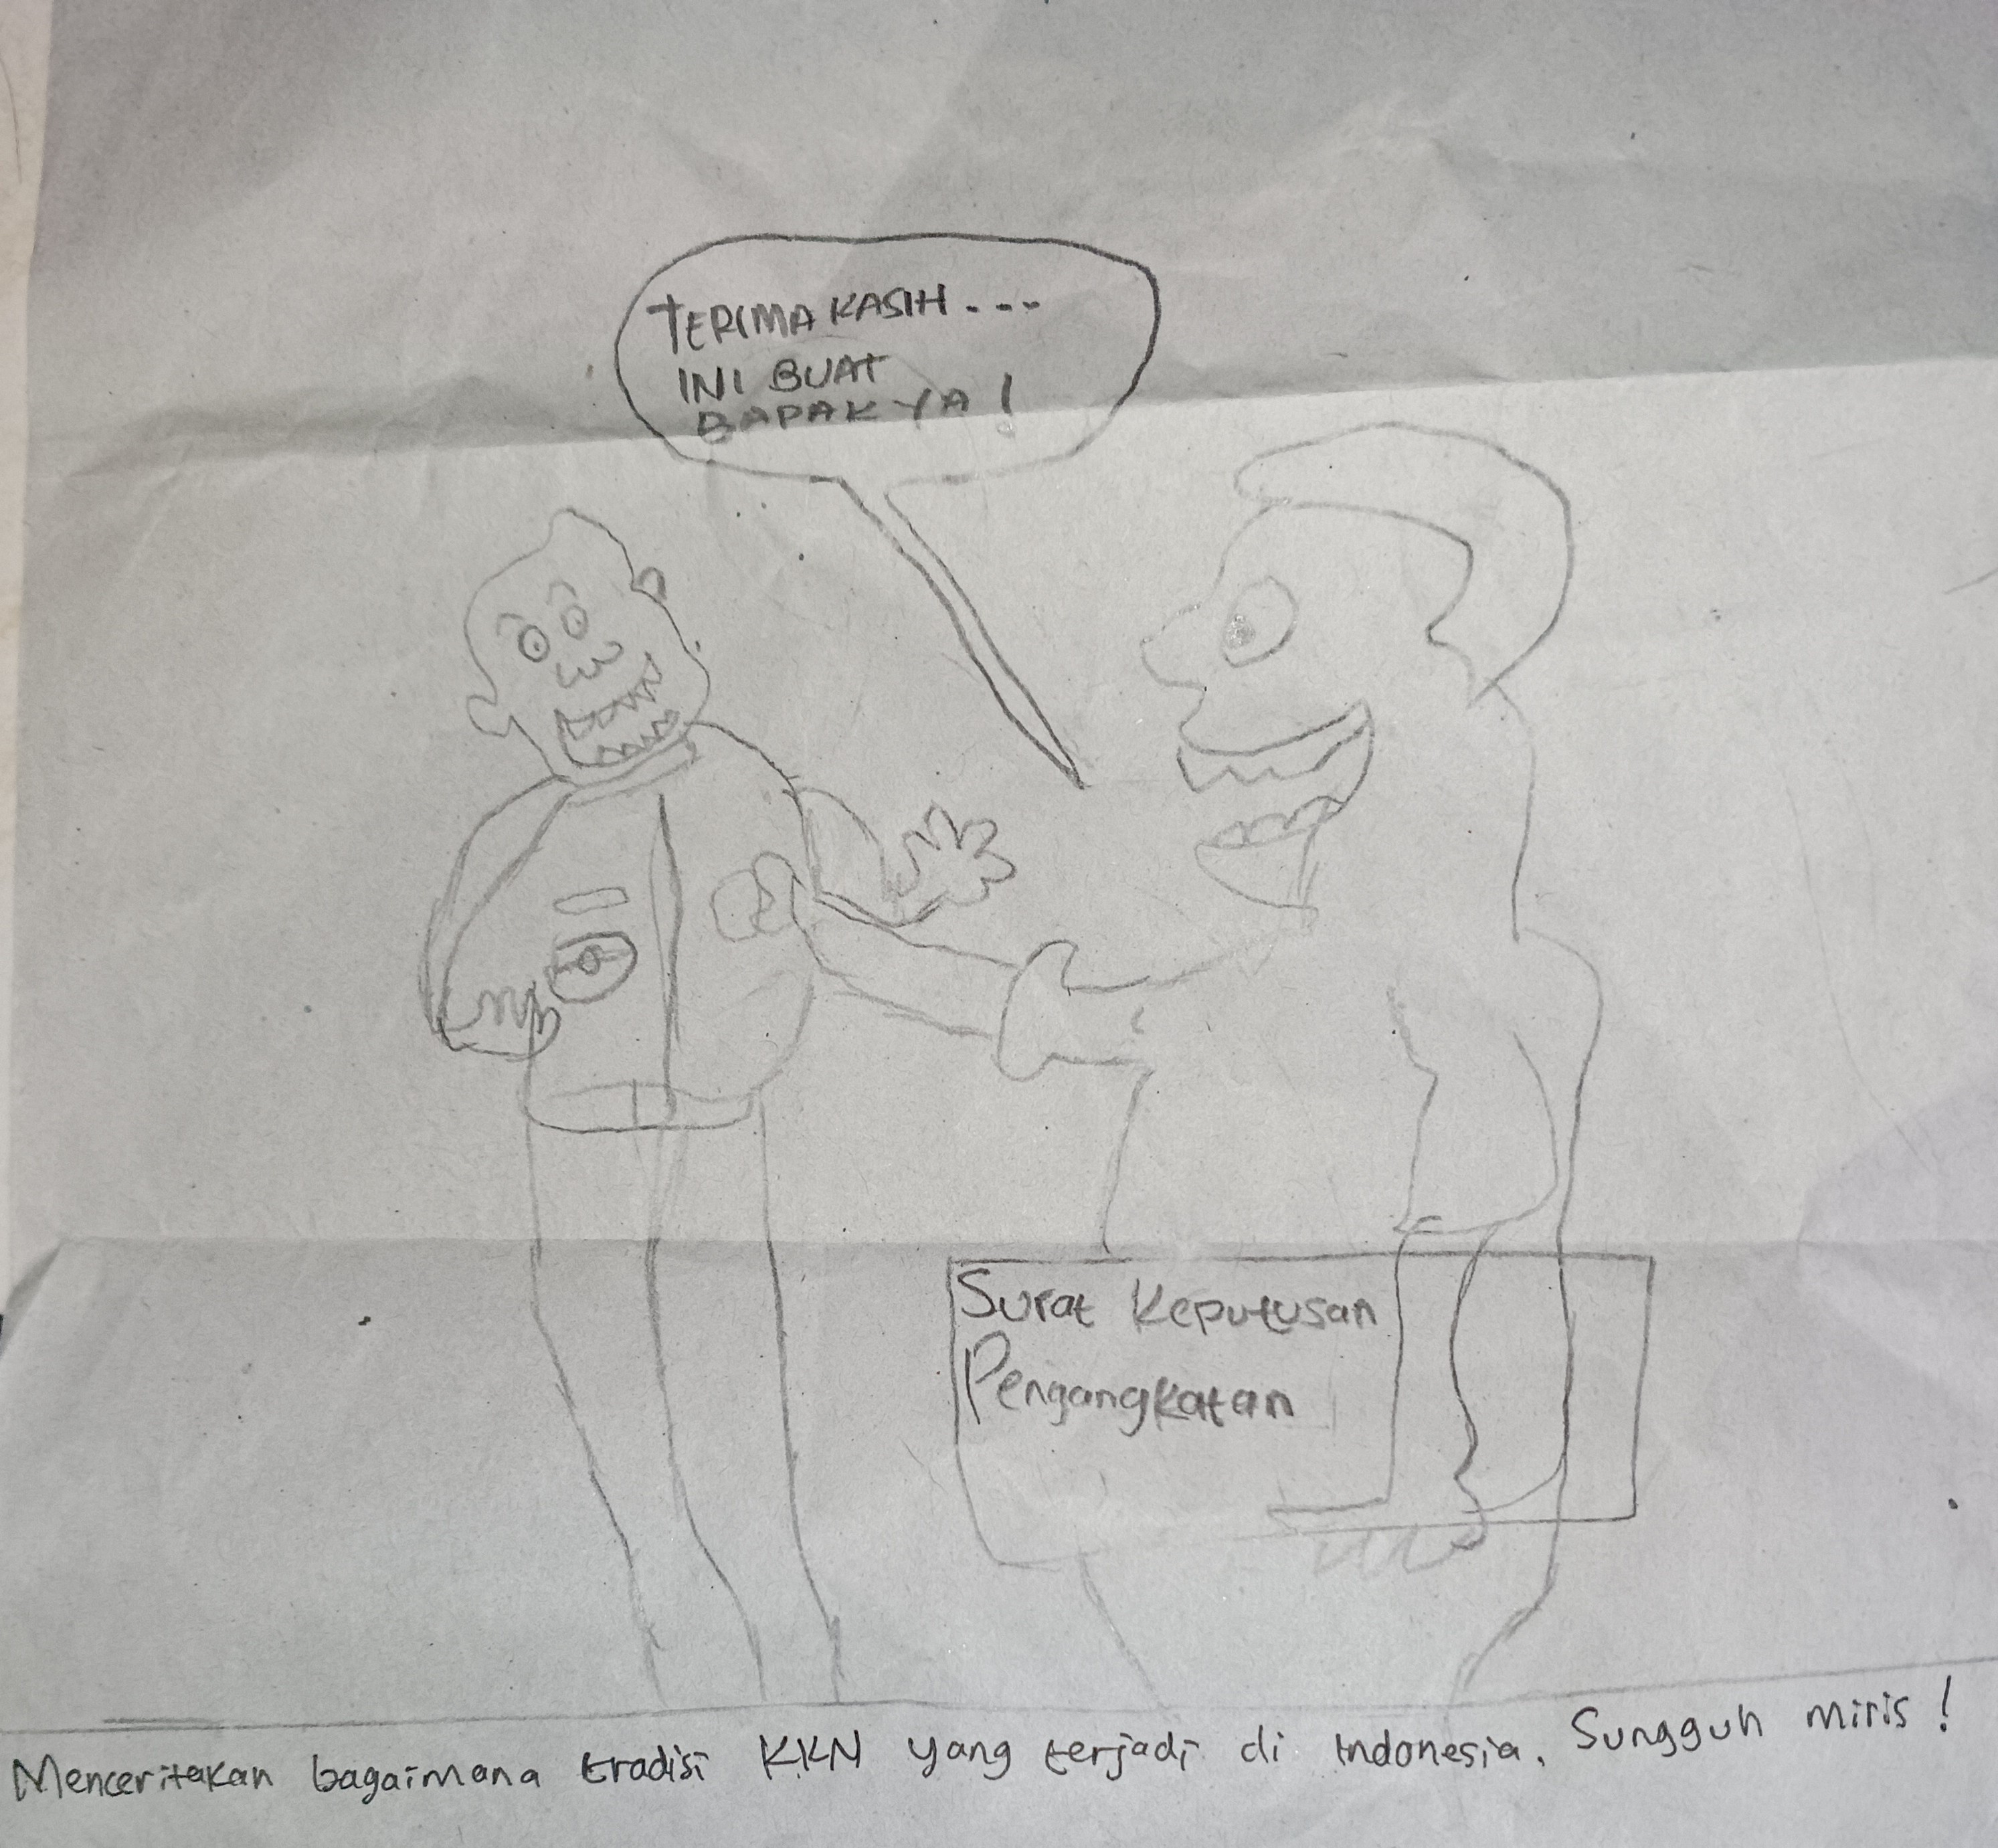 TERIMA KASIH....
INI BUAT
BAPAK YA!
Surat Keputusan
Pengangkatan
Menceritakan bagaimana tradisi KKN yang terjadi di Indonesia. Sungguh miris!